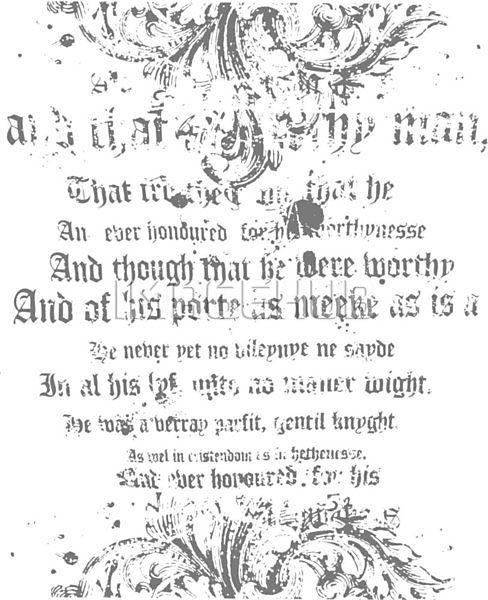 and that man,
That the that he
An ever honoured for his worthynesse
And though that he were worthy
And of his porte as meeke as is a
He never yet no vileynye ne sayde
In al his lyf unto no maner wight.
He was a verray parfit, gentil knyght.
As wel in cristendom as in hethenesse.
And ever honoured, for his